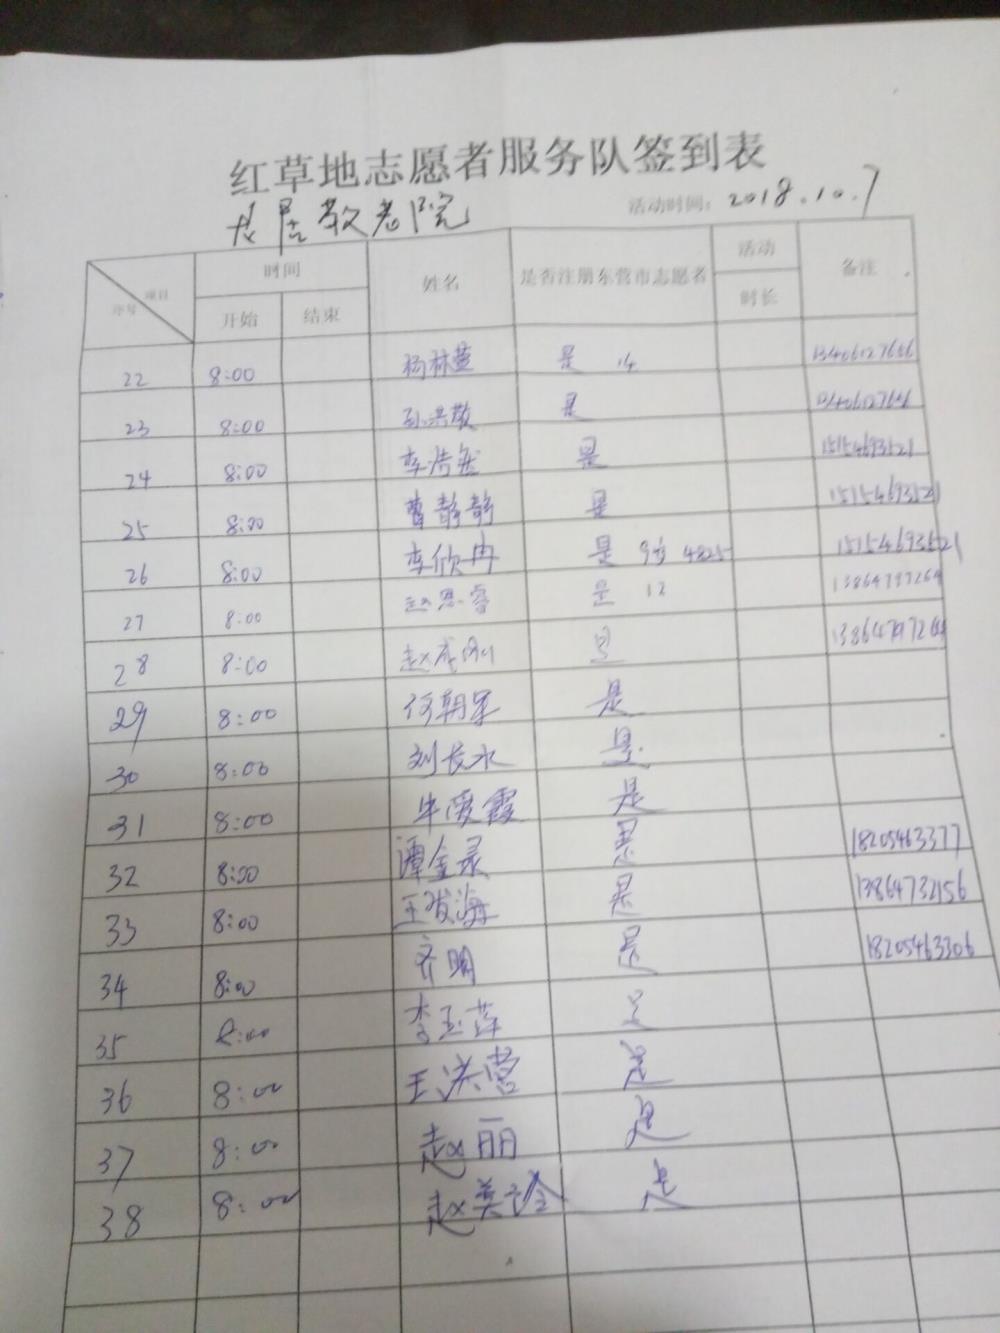 红草地志愿者服务队签到表
敬老院 活动时间: 2018.10.7
项目 序号 时间 开始 结束 姓名 是否注册东营市志愿者 活动 时长 备注
22 8:00 杨林萱 是 14
23 8:00 孙洪敬 是
24 8:00 是 15154693521
25 8:00 曹静静 是 15154693521
26 8:00 李欣冉 是 15154693521
27 8:00 赵思睿 是 12 13864797264
28 8:00 是 13864797264
29 8:00 是
30 8:00 刘长水 是
31 8:00 牛爱霞 是
32 8:00 谭金录 是 18205463377
33 8:00 是 13864732156
34 8:00 齐明 是 18205463306
35 8:00 李玉萍 是
36 8:00 王洪营 是
37 8:00 赵丽 是
38 8:00 赵美 是